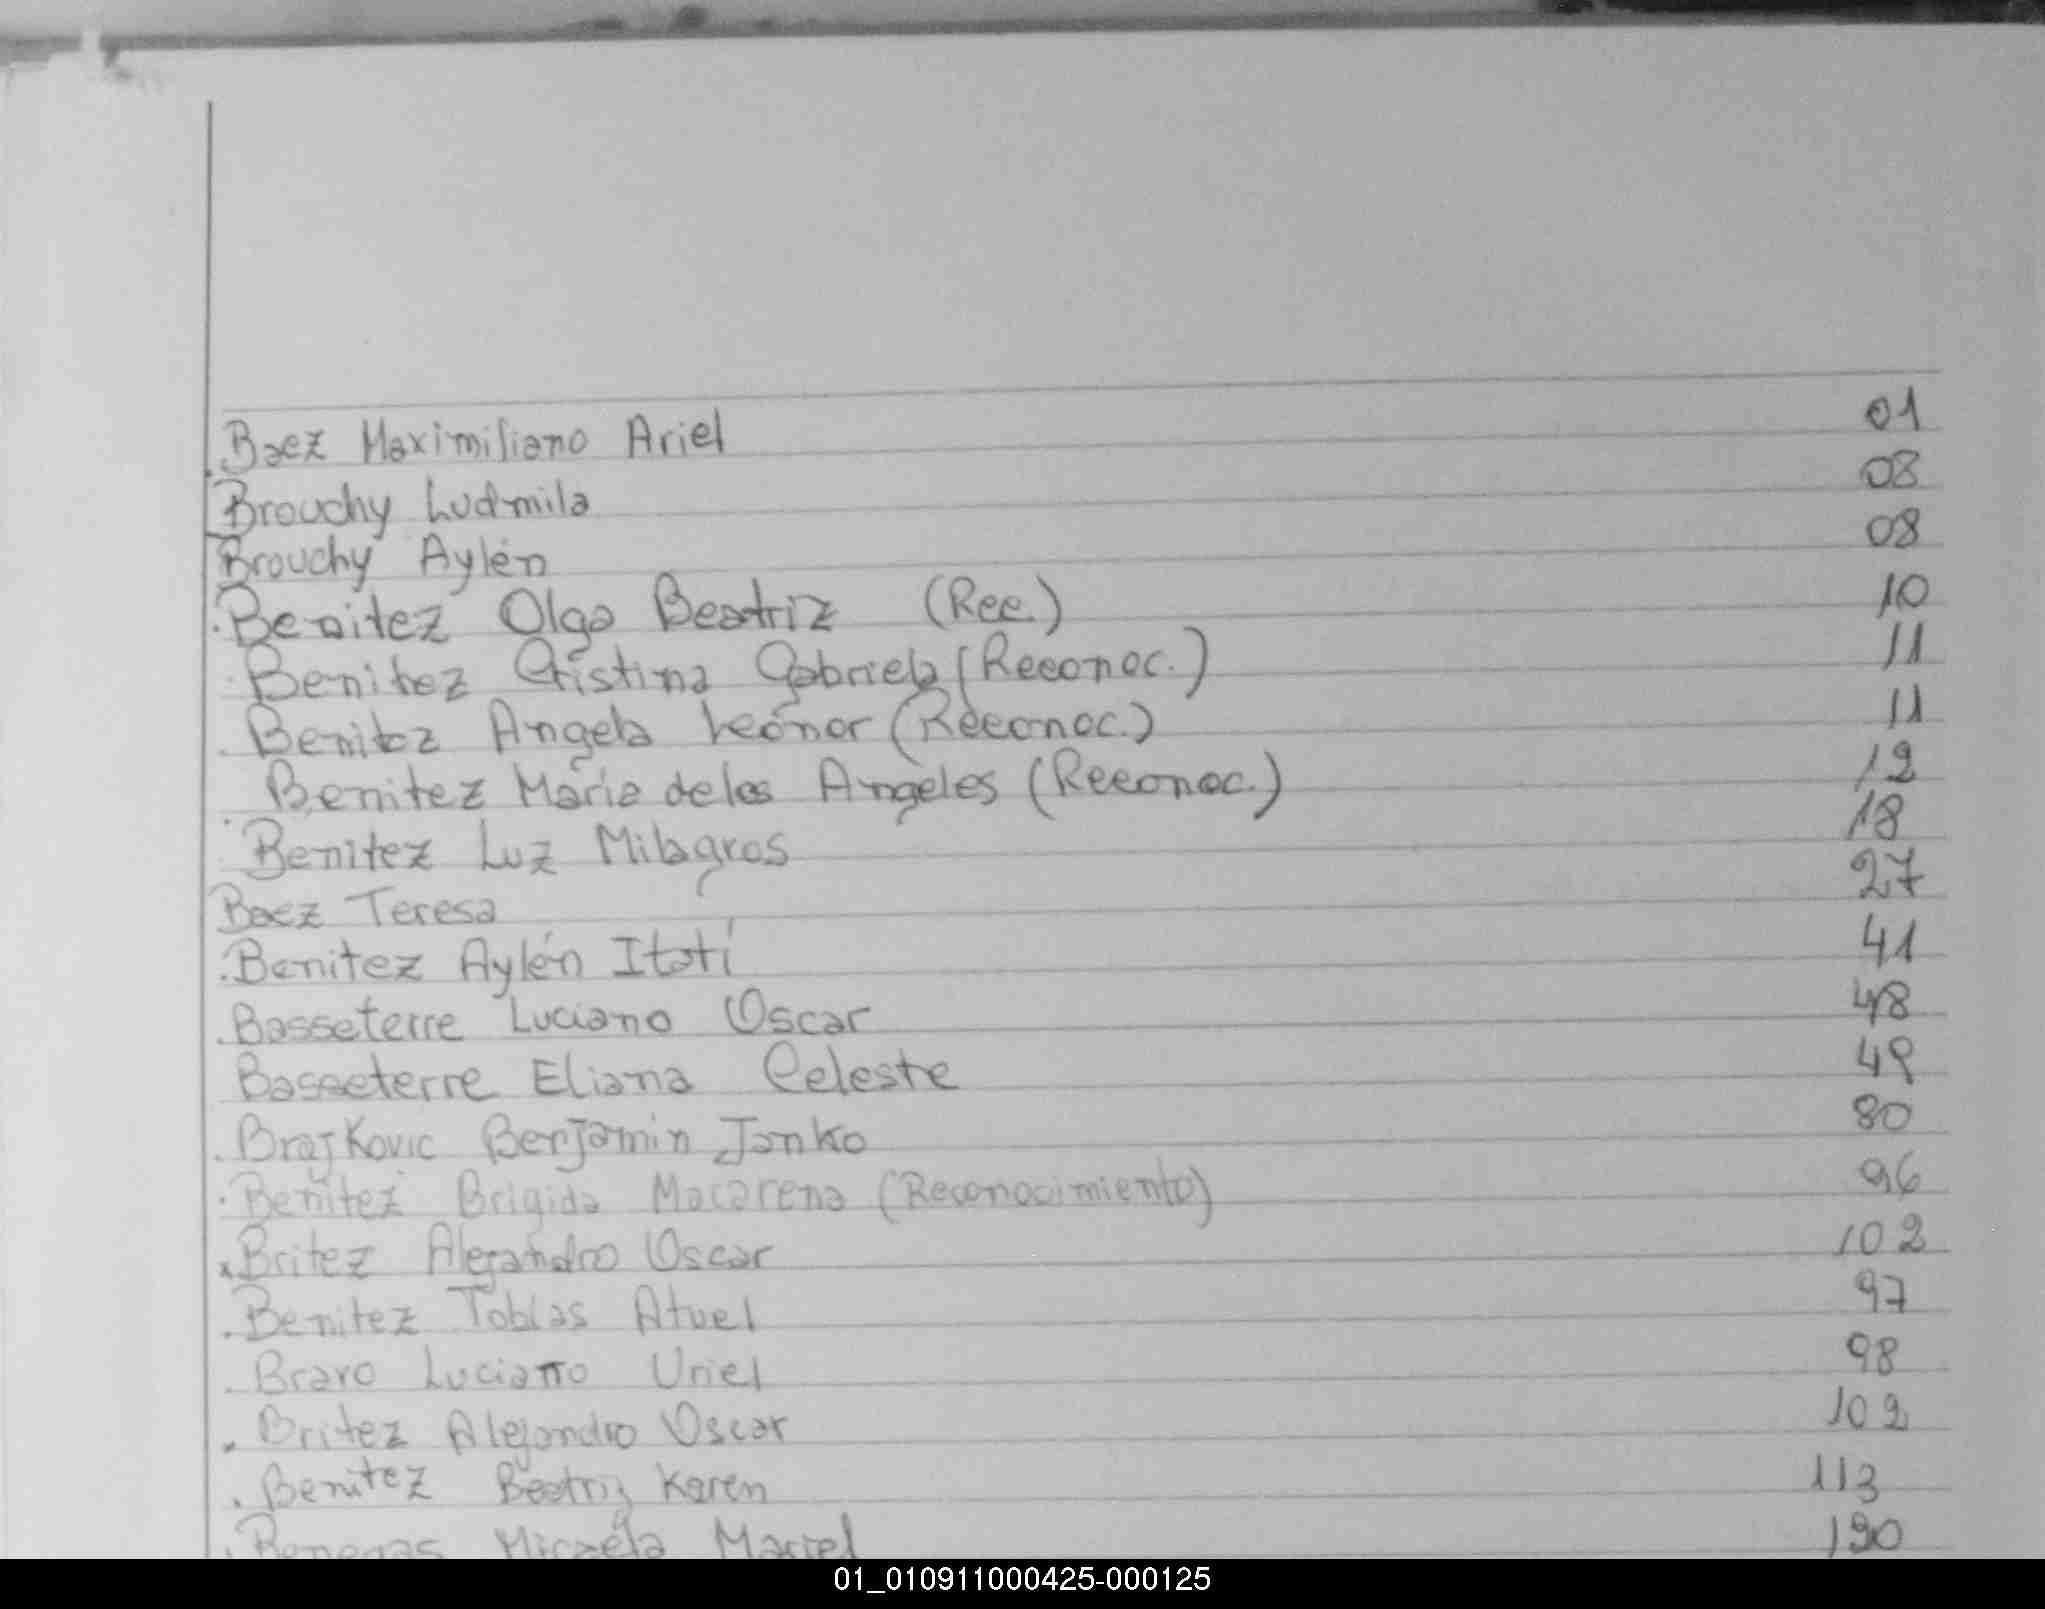 Baez Maximiliano Ariel 01
Brouchy Ludmila 08
Brouchy Aylén 08
Benitez Olga Beatriz (Rec.) 10
Benitez Cristina Gabriela (Reconoc.) 11
Benitez Angela Leonor (Reconoc.) 11
Benitez Maria de los Angeles (Reconoc.) 12
Benitez Luz Milagros 18
Baez Teresa 27
Benitez Aylén Itatí 41
Basseterre Luciano Oscar 48
Basseterre Eliana Celeste 49
Brajkovic Benjamin Janko 80
Benitez Brigida Macarena (Reconocimiento) 96
Britez Alejandro Oscar 102
Benitez Tobias Atuel 97
Bravo Luciano Uriel 98
Britez Alejandro Oscar 102
Benitez Beatriz Karen 113
Micaela Mariel
01_010911000425-000125